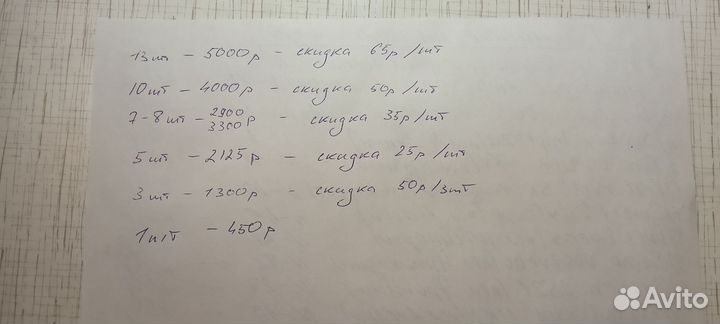 13шт - 5000р - скидка 65р/шт
10шт - 4000р - скидка 50р/шт
7-8шт - 2900
3300 р - скидка 35р/шт
5шт - 2125р - скидка 25р/шт
3шт - 1300р - скидка 50р/3шт
1шт - 450р
Avito